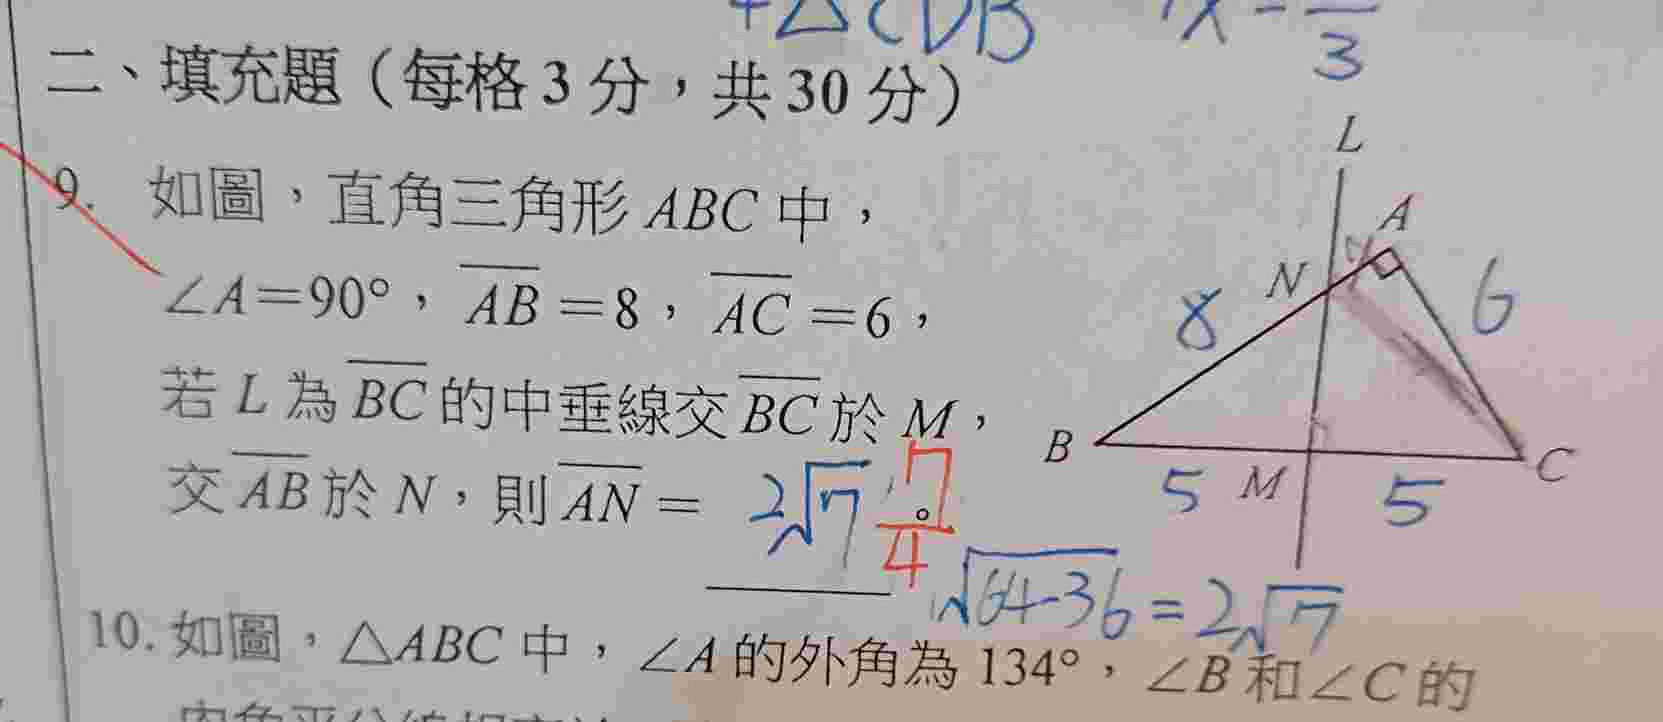 +△CDB x = 3
二、填充題（每格3分，共30分）
9. 如圖，直角三角形ABC中，
∠A=90°，AB=8，AC=6，
若L為BC的中垂線交BC於M，
交AB於N，則AN= 2√7 7/4 。
√64-36 = 2√7
L
A
N
8
6
B
5
M
5
C
10. 如圖，△ABC中，∠A的外角為134°，∠B和∠C的